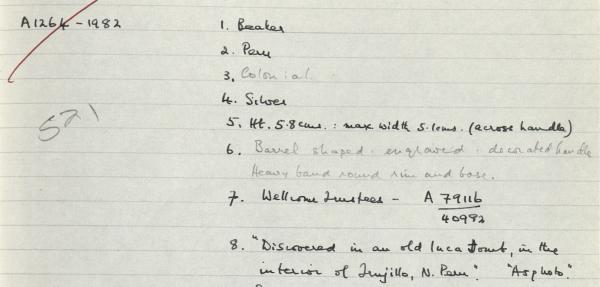 A1264 - 1982
1. Beaker
2. Peru
3. Colonial.
521
4. Silver
5. Ht. 5.8cms. : max width 5.1cms. (across handle)
6. Barrel shaped. engraved. decorated handle
Heavy band round rim and base.
7. Wellcome Trustees - A 79116
40992
8. "Discovered in an old Inca tomb, in the
interior of Trujillo, N. Peru". "As photo."